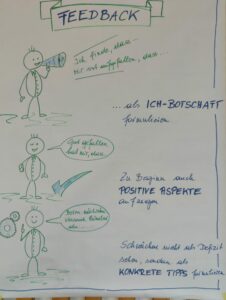 FEEDBACK
Ich finde, dass...
Mir ist aufgefallen, dass...
... als ICH-BOTSCHAFT
formulieren
Gut gefallen
hat mir, dass...
Zu Beginn auch
POSITIVE ASPEKTE
anfragen
Beim nächsten
Schwächen nicht als Defizit
sehen, sondern als
KONKRETE TIPPS formulieren